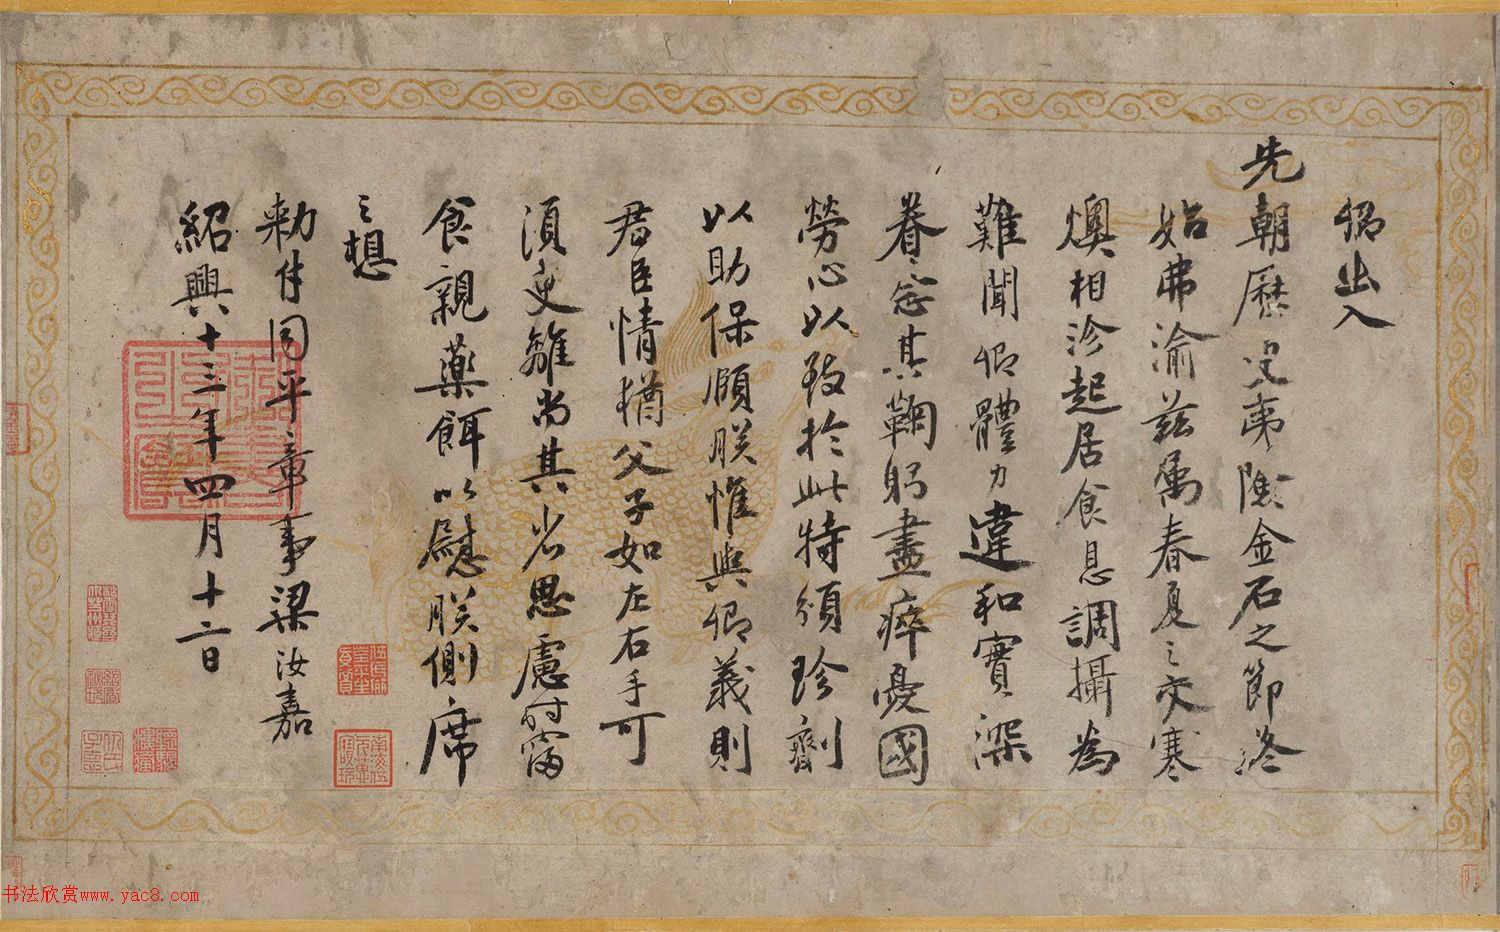 卿出入
先朝歷豈夷險金石之節終
始弗渝茲屬春夏之交寒
燠相沴起居食息調攝為
難聞卿體力違和實深
眷念其鞠躬盡瘁憂國
勞心以致於此特頒珍劑
以助保頤朕惟與卿義則
君臣情猶父子如左右手可
須臾離尚其省思慮時寤
食親藥餌以慰朕側席
之想
敕付同平章事梁汝嘉
紹興十三年四月十二日
书法欣赏www.yac8.com